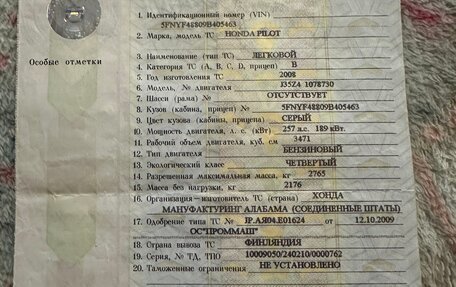 Особые отметки
1. Идентификационный номер (VIN)
5FNYF48809B405463
2. Марка, модель ТС HONDA PILOT
3. Наименование (тип ТС) ЛЕГКОВОЙ
4. Категория ТС (A, B, C, D, прицеп) B
5. Год изготовления ТС 2008
6. Модель, № двигателя J35Z4 1078730
7. Шасси (рама) № ОТСУТСТВУЕТ
8. Кузов (кабина, прицеп) № 5FNYF48809B405463
9. Цвет кузова (кабины, прицепа) СЕРЫЙ
10. Мощность двигателя, л. с. (кВт) 257 л.с. 189 кВт.
11. Рабочий объем двигателя, куб. см 3471
12. Тип двигателя БЕНЗИНОВЫЙ
13. Экологический класс ЧЕТВЕРТЫЙ
14. Разрешенная максимальная масса, кг 2765
15. Масса без нагрузки, кг 2176
16. Организация—изготовитель ТС (страна) ХОНДА
МАНУФАКТУРИНГ АЛАБАМА (СОЕДИНЕННЫЕ ШТАТЫ)
17. Одобрение типа ТС № JP.АЯ04.E01624 от 12.10.2009
ОС"ПРОММАШ"
18. Страна вывоза ТС ФИНЛЯНДИЯ
19. Серия, № ТД, ТПО 10009050/240210/0000762
20. Таможенные ограничения НЕ УСТАНОВЛЕНО